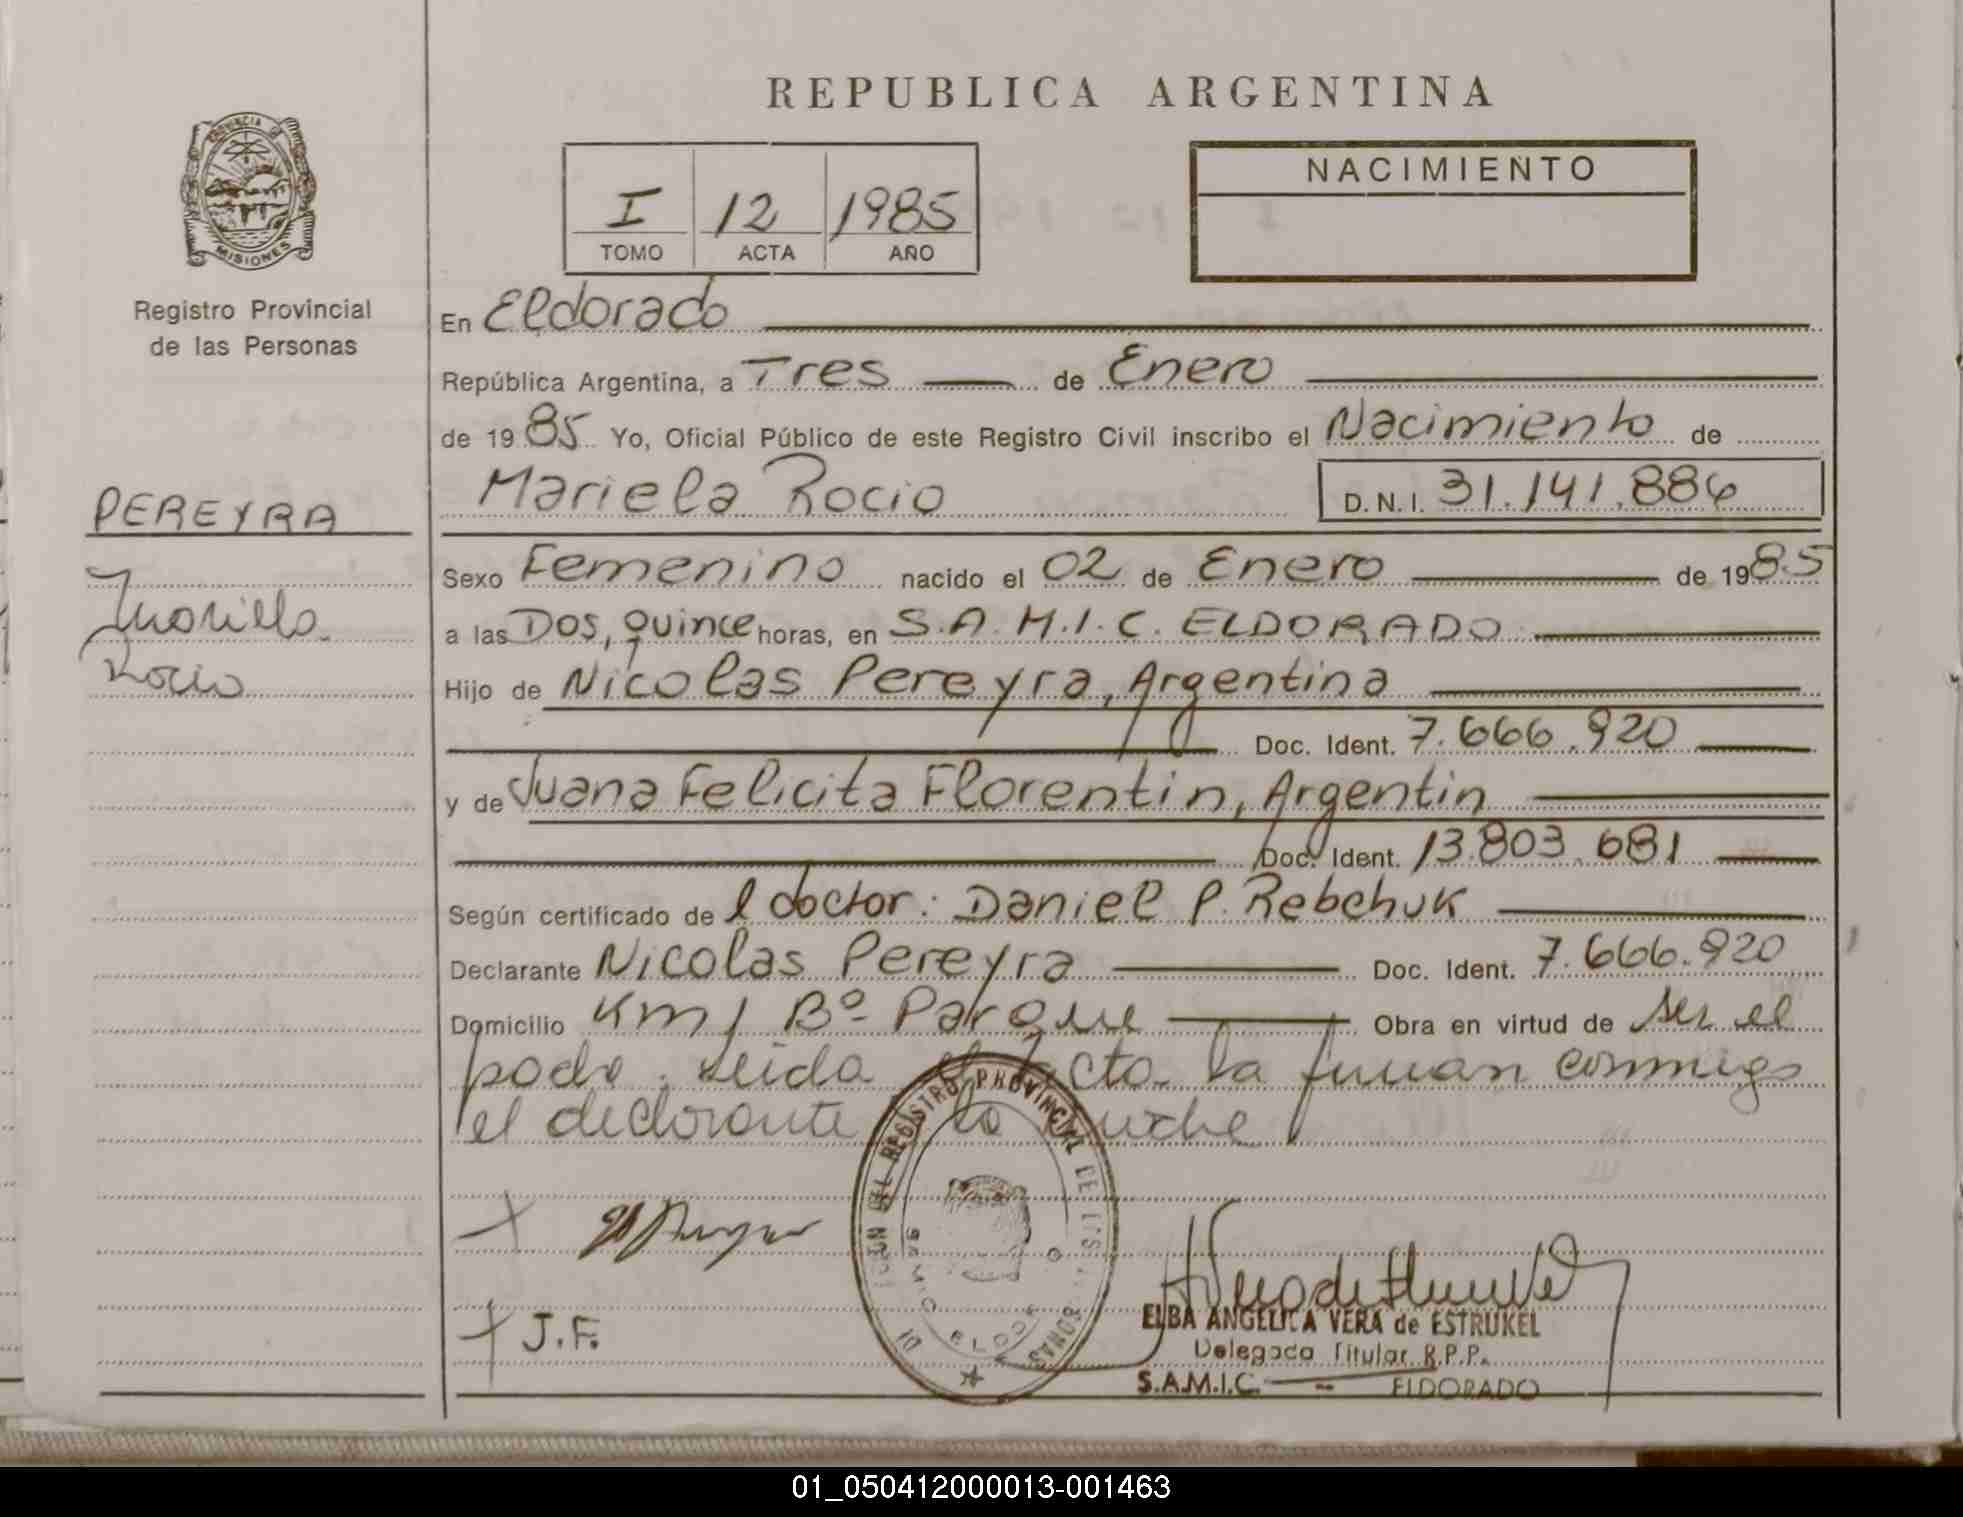 REPUBLICA ARGENTINA
PROVINCIA D
MISIONES
Registro Provincial
de las Personas
I 12 1985
TOMO ACTA AÑO
NACIMIENTO
En Eldorado
República Argentina, a Tres de Enero
de 19 85 Yo, Oficial Público de este Registro Civil inscribo el Nacimiento de
PEREYRA
Mariela Rocio
Mariela Rocio D. N. I. 31.141.886
Sexo Femenino nacido el 02 de Enero de 1985
a las Dos, quince horas, en S.A.M.I.C. ELDORADO
Hijo de Nicolas Pereyra, Argentina
Doc. Ident. 7.666.920
y de Juana Felicita Florentin, Argentin
Doc. Ident. 13.803.681
Según certificado de l doctor: Daniel P. Rebchuk
Declarante Nicolas Pereyra Doc. Ident. 7.666.920
Domicilio Km 1 Bº Parque Obra en virtud de ser el
padre. Leida el acta la firman conmigo
el declarante la
REGISTRO PROVINCIAL DE
J.F.
ELBA ANGELICA VERA de ESTRUKEL
Delegada Titular R.P.P.
S.A.M.I.C. - ELDORADO
01_050412000013-001463